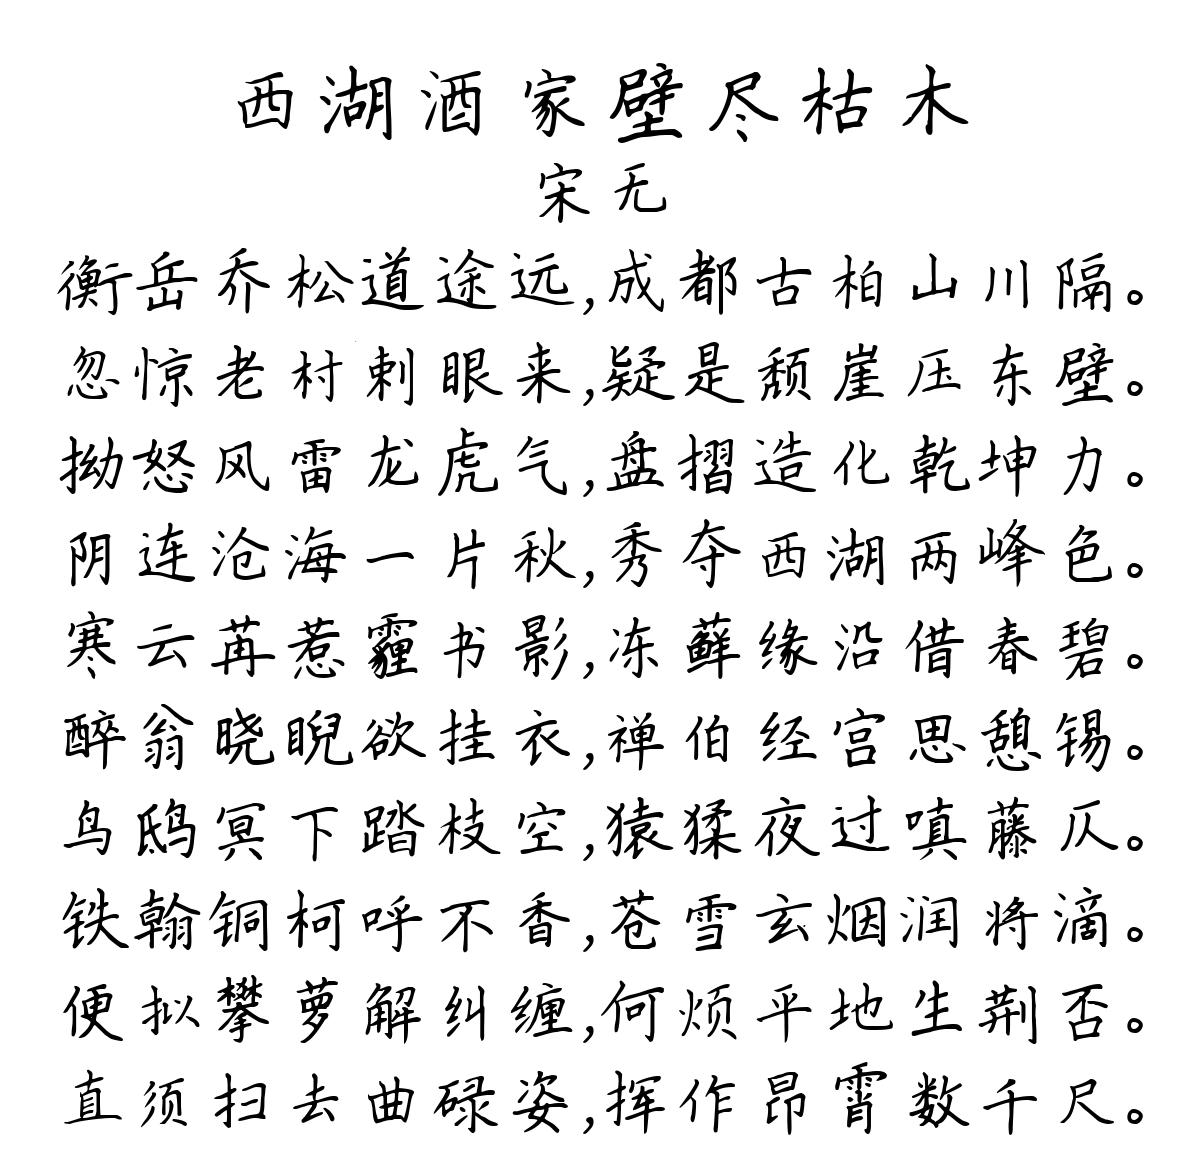 西湖酒家壁尽枯木
宋无
衡岳乔松道途远,成都古柏山川隔。
忽惊老村刺眼来,疑是颓崖压东壁。
拗怒风雷龙虎气,盘摺造化乾坤力。
阴连沧海一片秋,秀夺西湖两峰色。
寒云苒惹霾书影,冻藓缘沿借春碧。
醉翁晓睨欲挂衣,禅伯经宫思憩锡。
鸟鸱冥下踏枝空,猿猱夜过嗔藤仄。
铁翰铜柯呼不香,苍雪玄烟润将滴。
便拟攀萝解纠缠,何烦平地生荆否。
直须扫去曲碌姿,挥作昂霄数千尺。